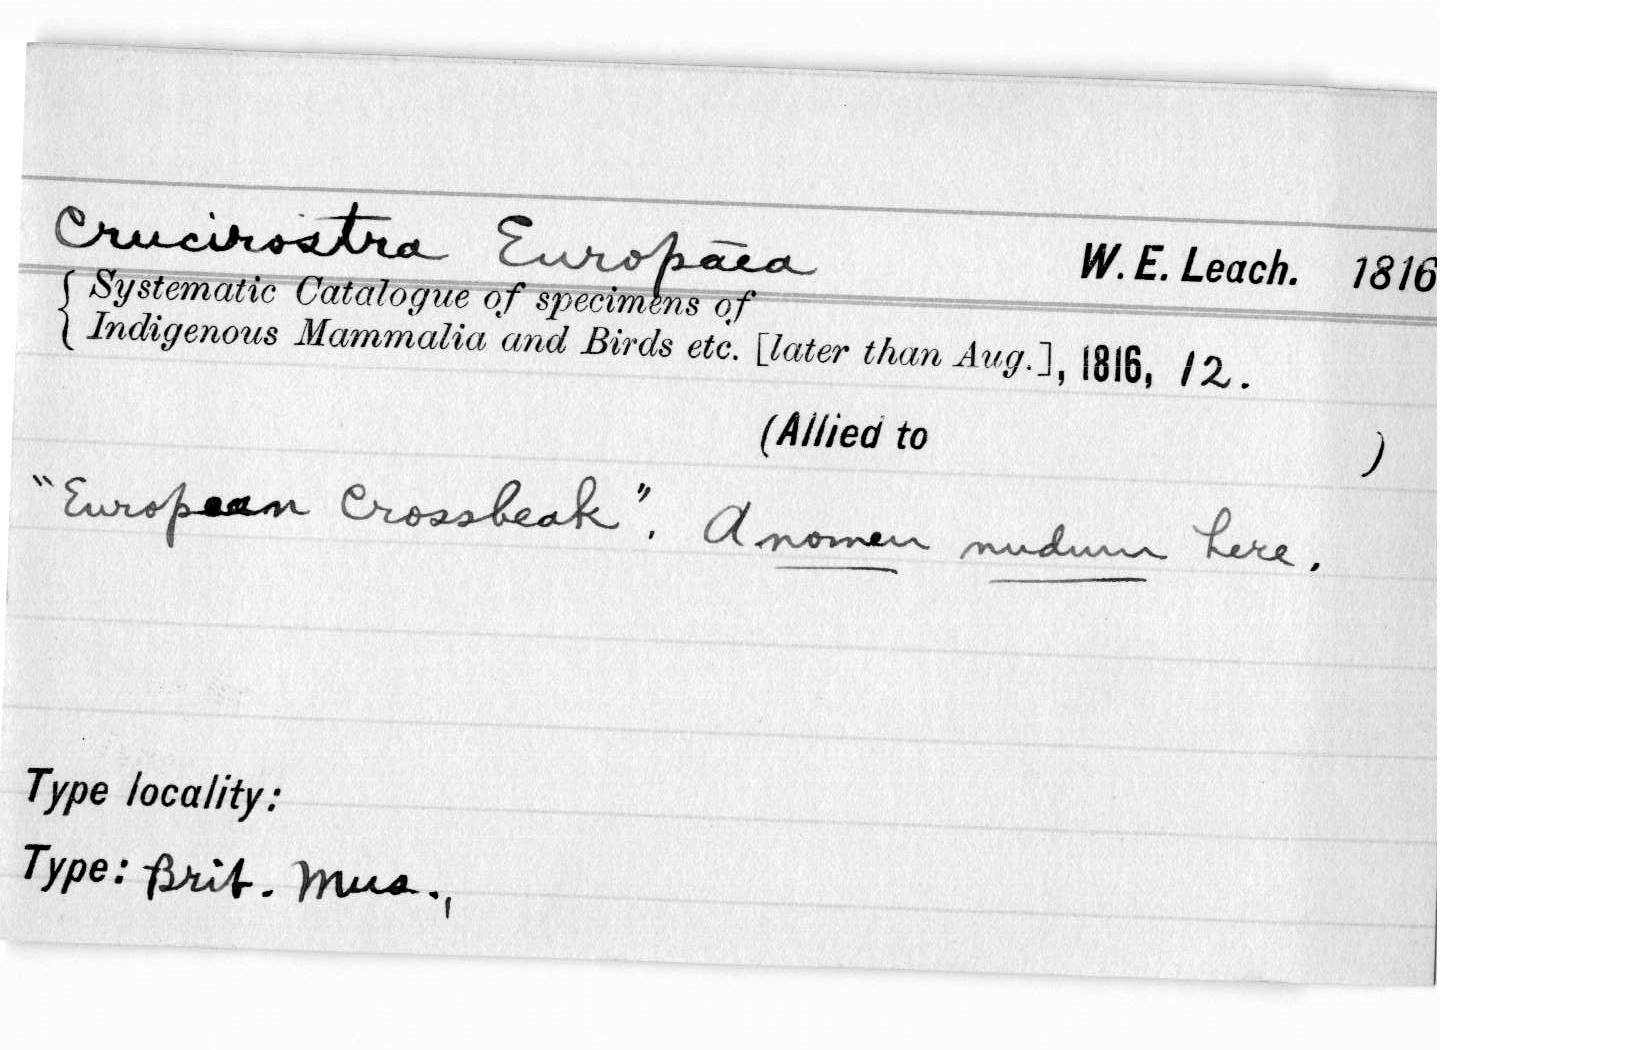 Crucirostra Europāea W. E. Leach. 1816
{ Systematic Catalogue of specimens of
Indigenous Mammalia and Birds etc. [later than Aug.], 1816, 12.
(Allied to )
"European Crossbeak". A nomen nudum here.
Type locality:
Type: Brit. Mus.,